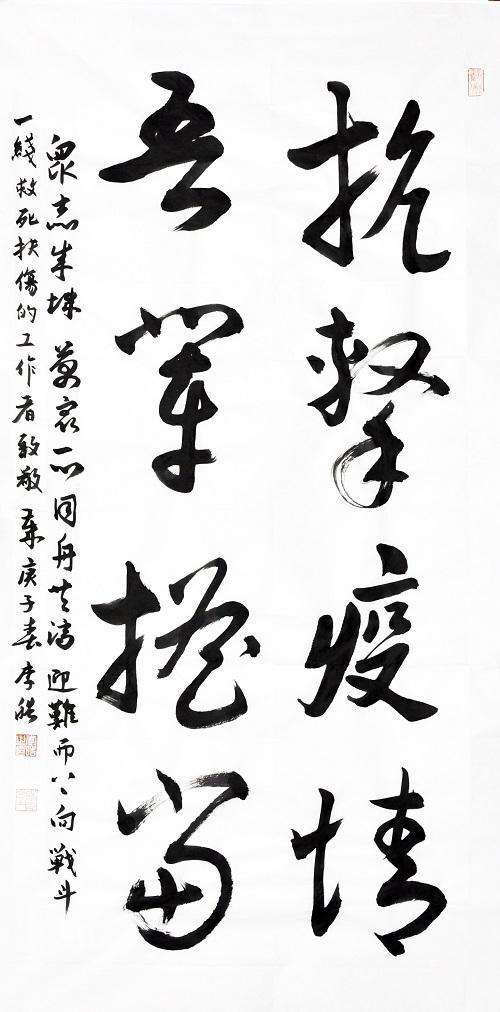 抗擊疫情
吾輩擔當
衆志成城萬衆一心同舟共濟迎難而上向戰斗
一綫救死扶傷的工作者致敬庚子春李